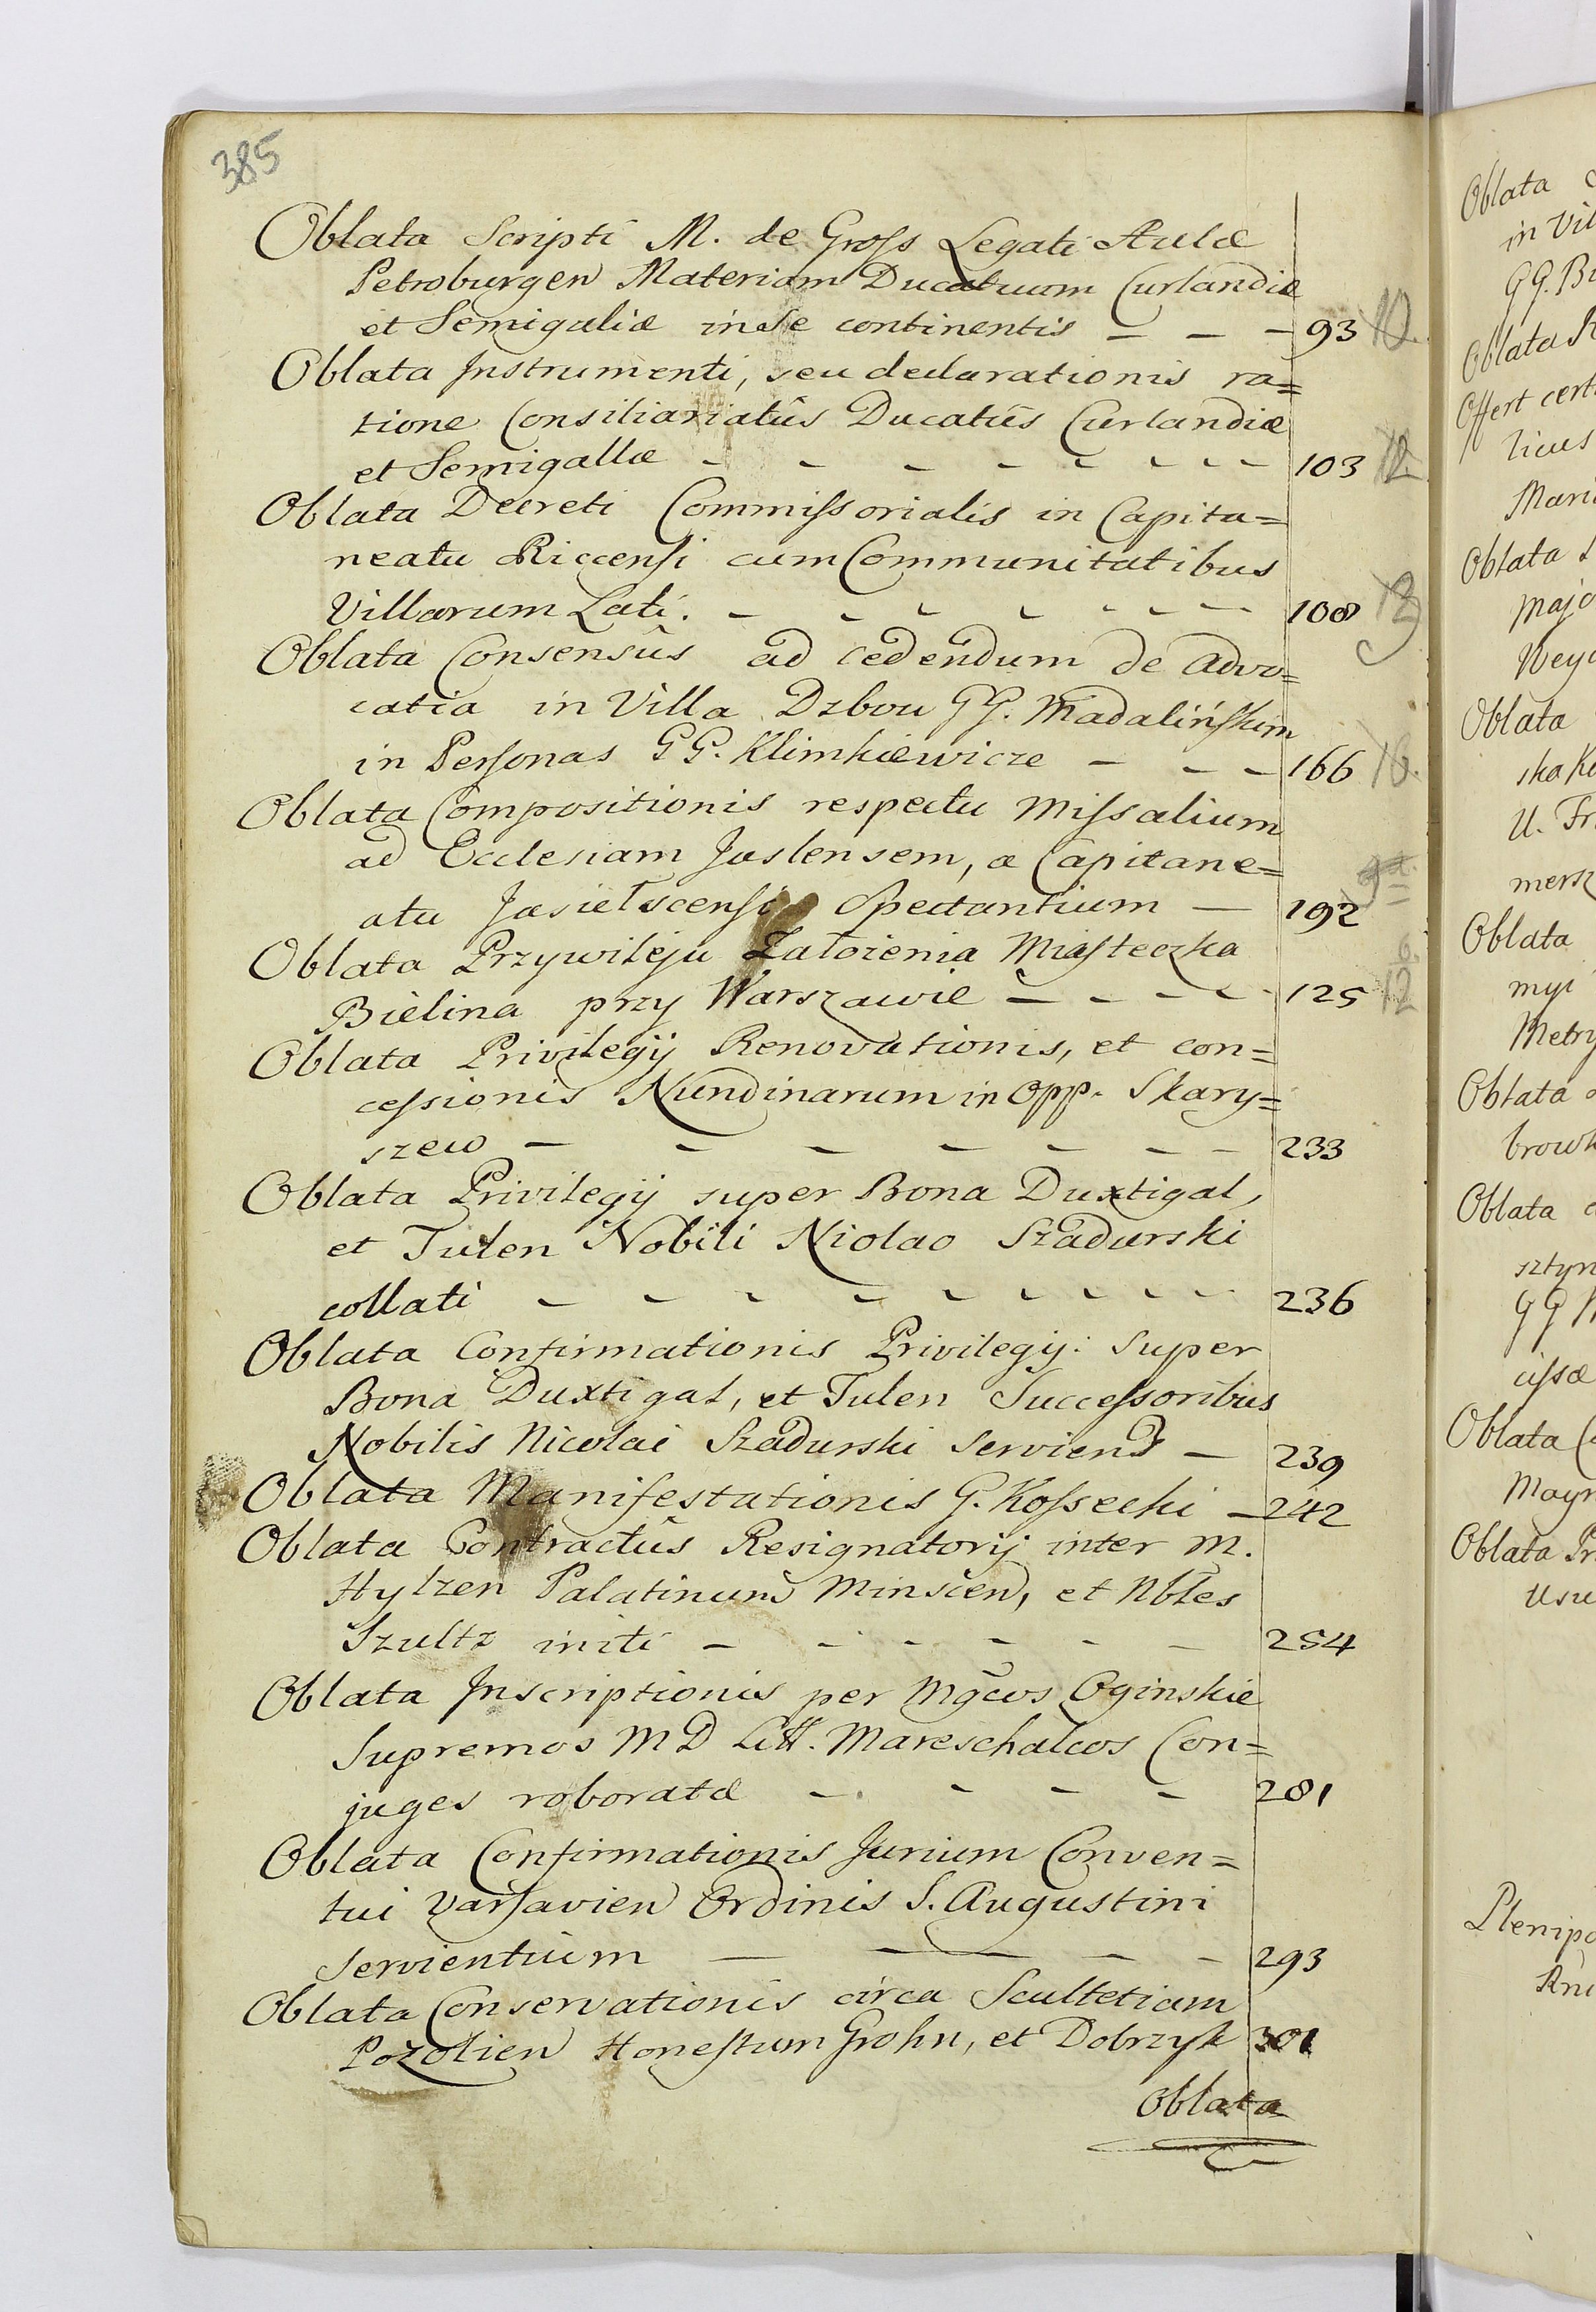 385
Oblata Scripti M. de Gross Legati Aulæ
Petroburgen Materiam Ducatuum Curlandiæ
et Semigaliæ in se continentis — — — 93
Oblata Instrumenti, seu declarationis ra=
tione Consiliariatûs Ducatûs Curlandiæ
et Semigallæ - - - - - - - - 103 12
Oblata Decreti Commissorialis in Capita=
neatu Riccensi cum Communitatibus
Villarum Lati. - - - - - - - 108
Oblata Consensûs ad cedendum de advo=
catia in Villa Dzbou GG. Madalińskim
in Personas GG. Klimkiewicze - - - 166 16.
Oblata Compositionis respectu Missalium
ad Ecclesiam Jaslensem, a Capitane=
atu Spectantium — 192
Oblata Przywileju Założenia Miasteczka
Bielina przy Warszawie - - - - 125 12
Oblata Privilegij Renovationis, et con=
cessionis Nundinarum in Opp. Skary=
szew - - - - - - - 233
Oblata Privilegij super Bona Duxtigal,
et Tulen Nobili Niolao Szadurski
collati - - - - - - - - - 236
Oblata Confirmationis Privilegij. Super
Bona Duxtigal, et Tulen Successoribus
Nobilis Nicolai Szadurski Serviens — 239
Oblata Manifestationis G. Kossecki — 242
Oblata Contractûs Resignatorij inter M.
Hylzen Palatinum Minscen, et Nbles
Szultz initi - - - - - - 254
Oblata Inscriptionis per Mgcos Oginskie
Supremos MD Litt. Mareschalcos Con=
juges roboratæ - - - - 281
Oblata Confirmationis Jurium Conven=
tui Varsavien Ordinis S. Augustini
Servientium — — — - - 293
Oblata Conservationis circa Scultetiam
Honestum Grohn, et Dobrzysk 301
Oblata
Oblata
in Vil
GG. Br
Oblata
Offert cert
licus
Mari
Oblata
majo
Weyc
Oblata
ska Ko
U. Fr
mersz
Oblata
Metry
Oblata
browk
Oblata
sztyn
GG
Oblata
Mayn
Oblata Pr
Usu
Plenipo